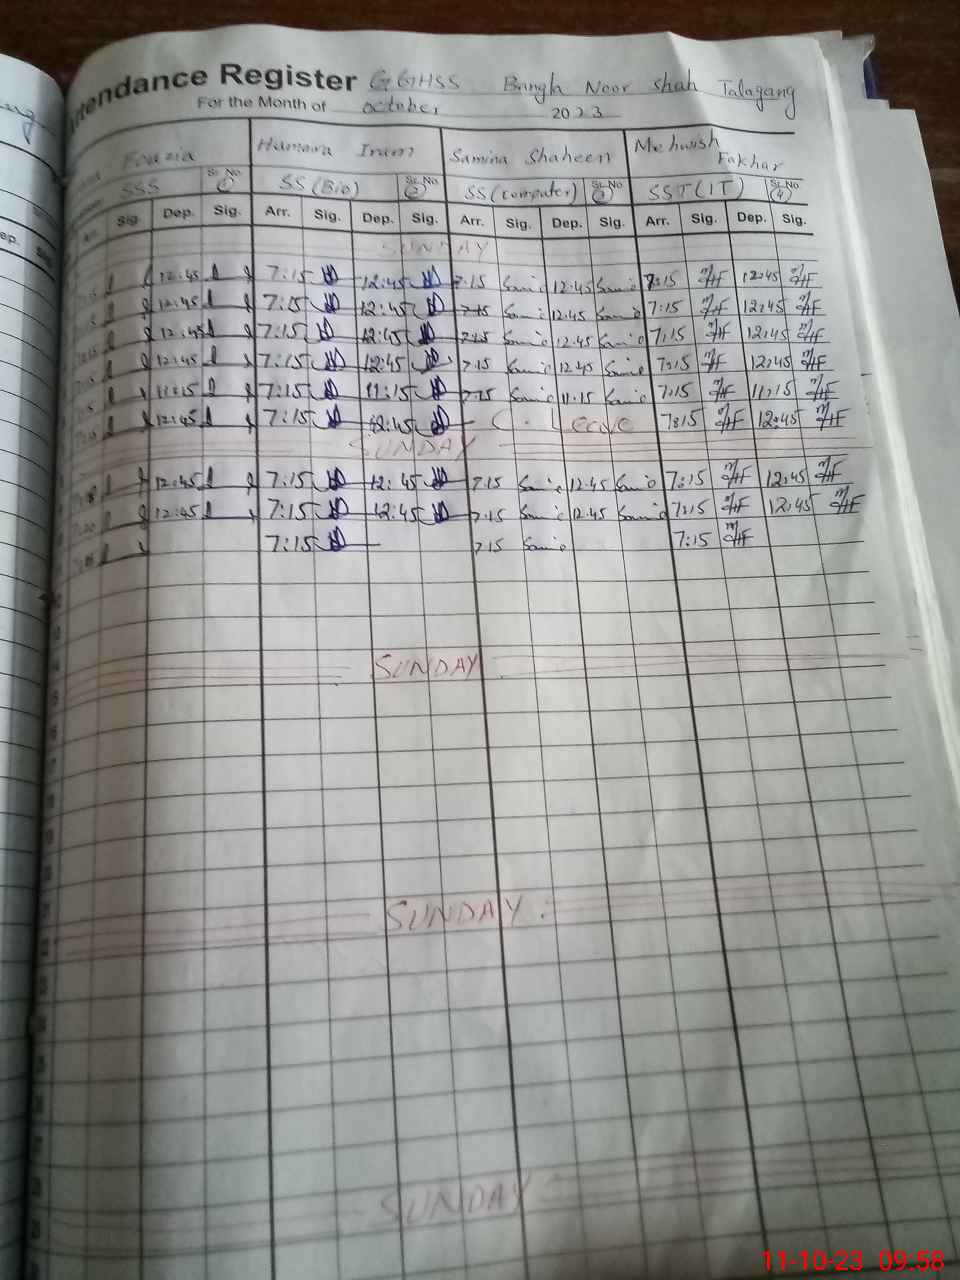 Attendance Register GGHSS Bangla Noor Shah Talagang
For the Month of October 2023
Fouzia Humaira Iram Samina Shaheen Mehwish Fakhar
SSS Sr. No 1 SS (Bio) Sr. No 2 SS (computer) Sr. No 3 SST (IT) Sr. No 4
Arr. Sig. Dep. Sig. Arr. Sig. Dep. Sig. Arr. Sig. Dep. Sig. Arr. Sig. Dep. Sig.
SUNDAY
12:45 7:15 12:45 7:15 Samia 12:45 Samia 7:15 12:45
12:45 7:15 12:45 7:15 Samia 12:45 Samia 7:15 12:45
12:45 7:15 12:45 7:15 Samia 12:45 Samia 7:15 12:45
12:45 7:15 12:45 7:15 Samia 12:45 Samia 7:15 12:45
11:15 7:15 11:15 7:15 Samia 11:15 Samia 7:15 11:15
12:45 7:15 12:45 C. Leave 7:15 12:45
SUNDAY
12:45 7:15 12:45 7:15 Samia 12:45 Samia 7:15 12:45
12:45 7:15 12:45 7:15 Samia 12:45 Samia 7:15 12:45
7:15 7:15 Samia 7:15
SUNDAY
SUNDAY
SUNDAY
11-10-23 09:58